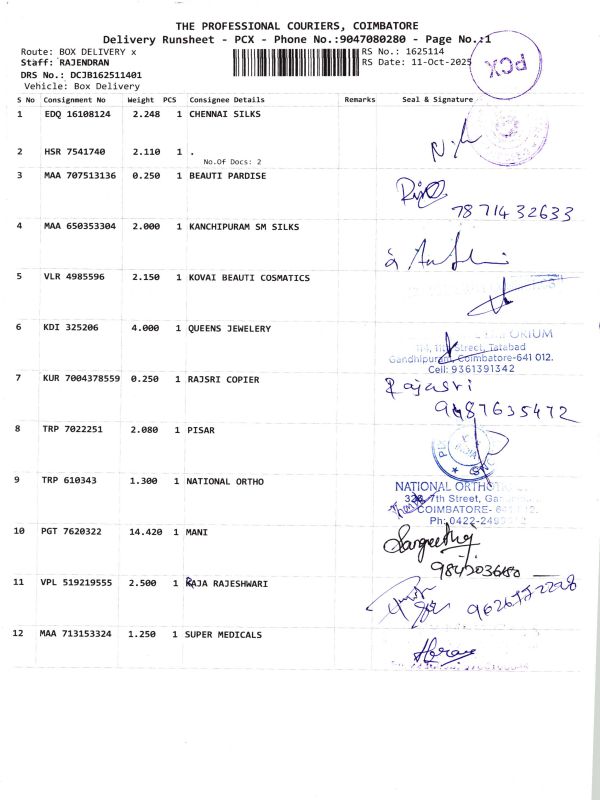 THE PROFESSIONAL COURIERS, COIMBATORE
Delivery Runsheet - PCX - Phone No.:9047080280 - Page No.:1
Route: BOX DELIVERY x RS No.: 1625114
Staff: RAJENDRAN RS Date: 11-Oct-2025
PCX
DRS No.: DCJB162511401
Vehicle: Box Delivery
S No Consignment No Weight PCS Consignee Details Remarks Seal & Signature
1 EDQ 16108124 2.248 1 CHENNAI SILKS
2 HSR 7541740 2.110 1 .
No.Of Docs: 2
3 MAA 707513136 0.250 1 BEAUTI PARDISE
78714 32633
4 MAA 650353304 2.000 1 KANCHIPURAM SM SILKS
5 VLR 4985596 2.150 1 KOVAI BEAUTI COSMATICS
6 KDI 325206 4.000 1 QUEENS JEWELERY
Street, Tatabad
Gandhipuram, Coimbatore-641 012.
Cell: 9361391342
7 KUR 7004378559 0.250 1 RAJSRI COPIER
Rajasri
9487635472
8 TRP 7022251 2.080 1 PISAR
9 TRP 610343 1.300 1 NATIONAL ORTHO
NATIONAL
7th Street,
COIMBATORE-
Ph: 0422-
10 PGT 7620322 14.420 1 MANI
11 VPL 519219555 2.500 1 RAJA RAJESHWARI
12 MAA 713153324 1.250 1 SUPER MEDICALS